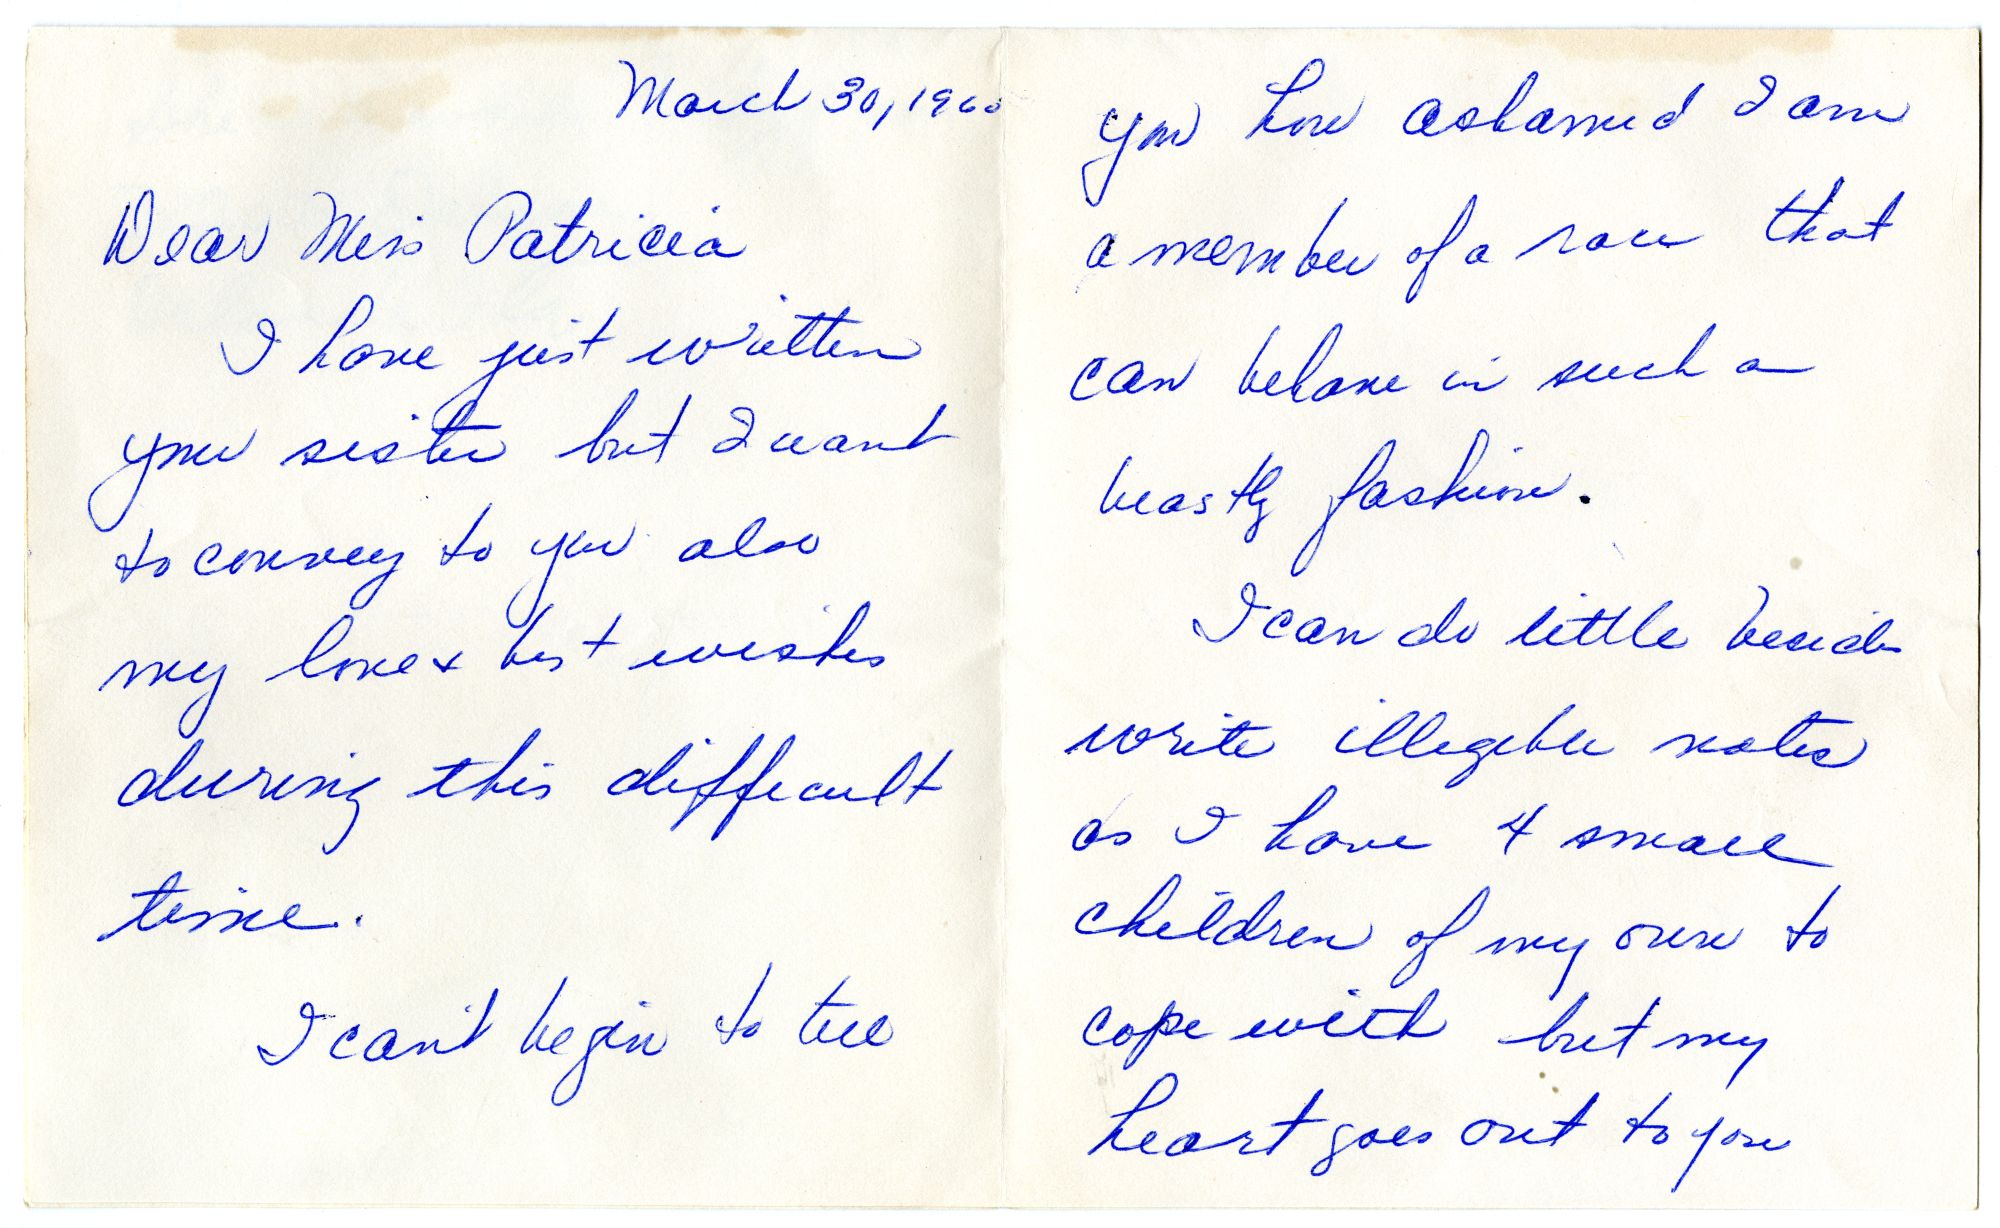 March 30, 1960
Dear Miss Patricia
I have just written
your sister but I want
to convey to you also
my love & best wishes
during this difficult
time.
I can't begin to tell
you how ashamed I am
a member of a race that
can behave in such a
beastly fashion.
I can do little beside
write illegible notes
as I have 4 small
children of my own to
cope with but my
heart goes out to you